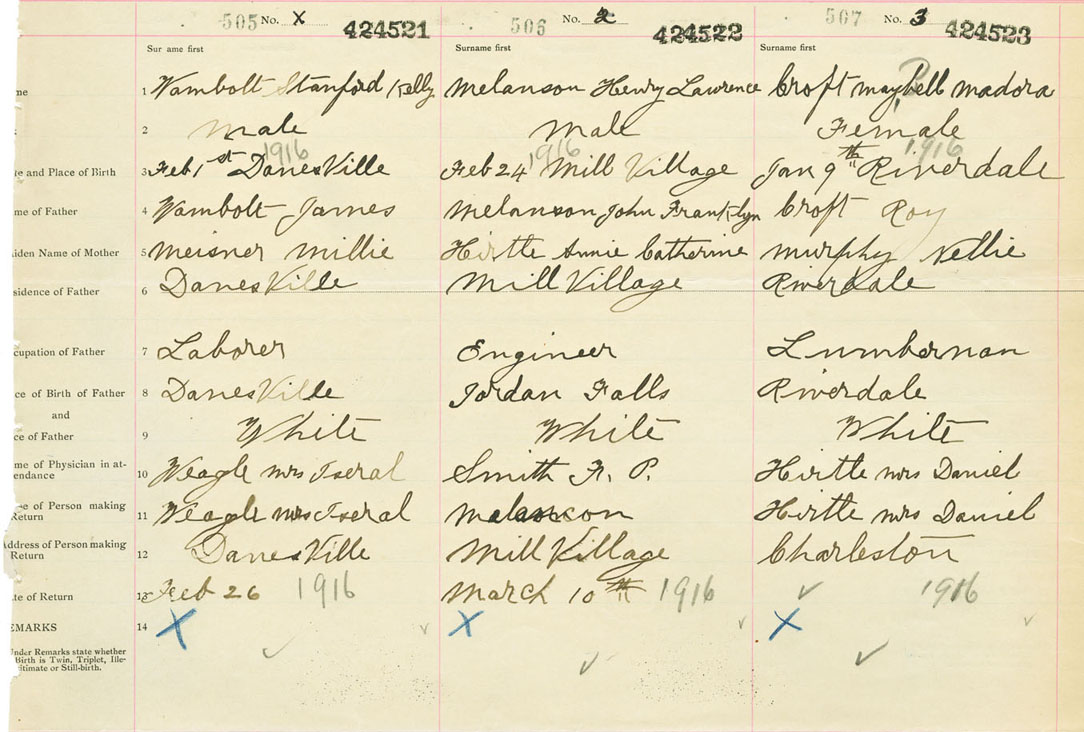 505 No. X 424521 506 No. 2 424522 507 No. 3 424523
Sur ame first Surname first Surname first
me 1 Wambolt Stanford Kelly Melanson Henry Lawrence Croft maybell madora
2 Male Male Female
te and Place of Birth 3 Feb 1st 1916 DanesVille Feb 24 1916 Mill Village Jan 9th 1916 Riverdale
me of Father 4 Wambolt James Melanson John Franklyn Croft Roy
iden Name of Mother 5 Meisner Millie Hirtle Annie Catherine Murphy Nellie
sidence of Father 6 DanesVille Mill Village Riverdale
cupation of Father 7 Laborer Engineer Lumberman
ce of Birth of Father 8 DanesVille Jordan Falls Riverdale
and
ce of Father 9 White White White
me of Physician in at-
endance 10 Weagle mrs Iseral Smith F. P. Hirtle mrs Daniel
e of Person making
Return 11 Weagle mrs Iseral Hirtle mrs Daniel
Address of Person making
Return 12 DanesVille Mill Village Charleston
te of Return 13 Feb 26 1916 March 10th 1916 1916
EMARKS 14 X X X
Under Remarks state whether
Birth is Twin, Triplet, Ille-
itimate or Still-birth.